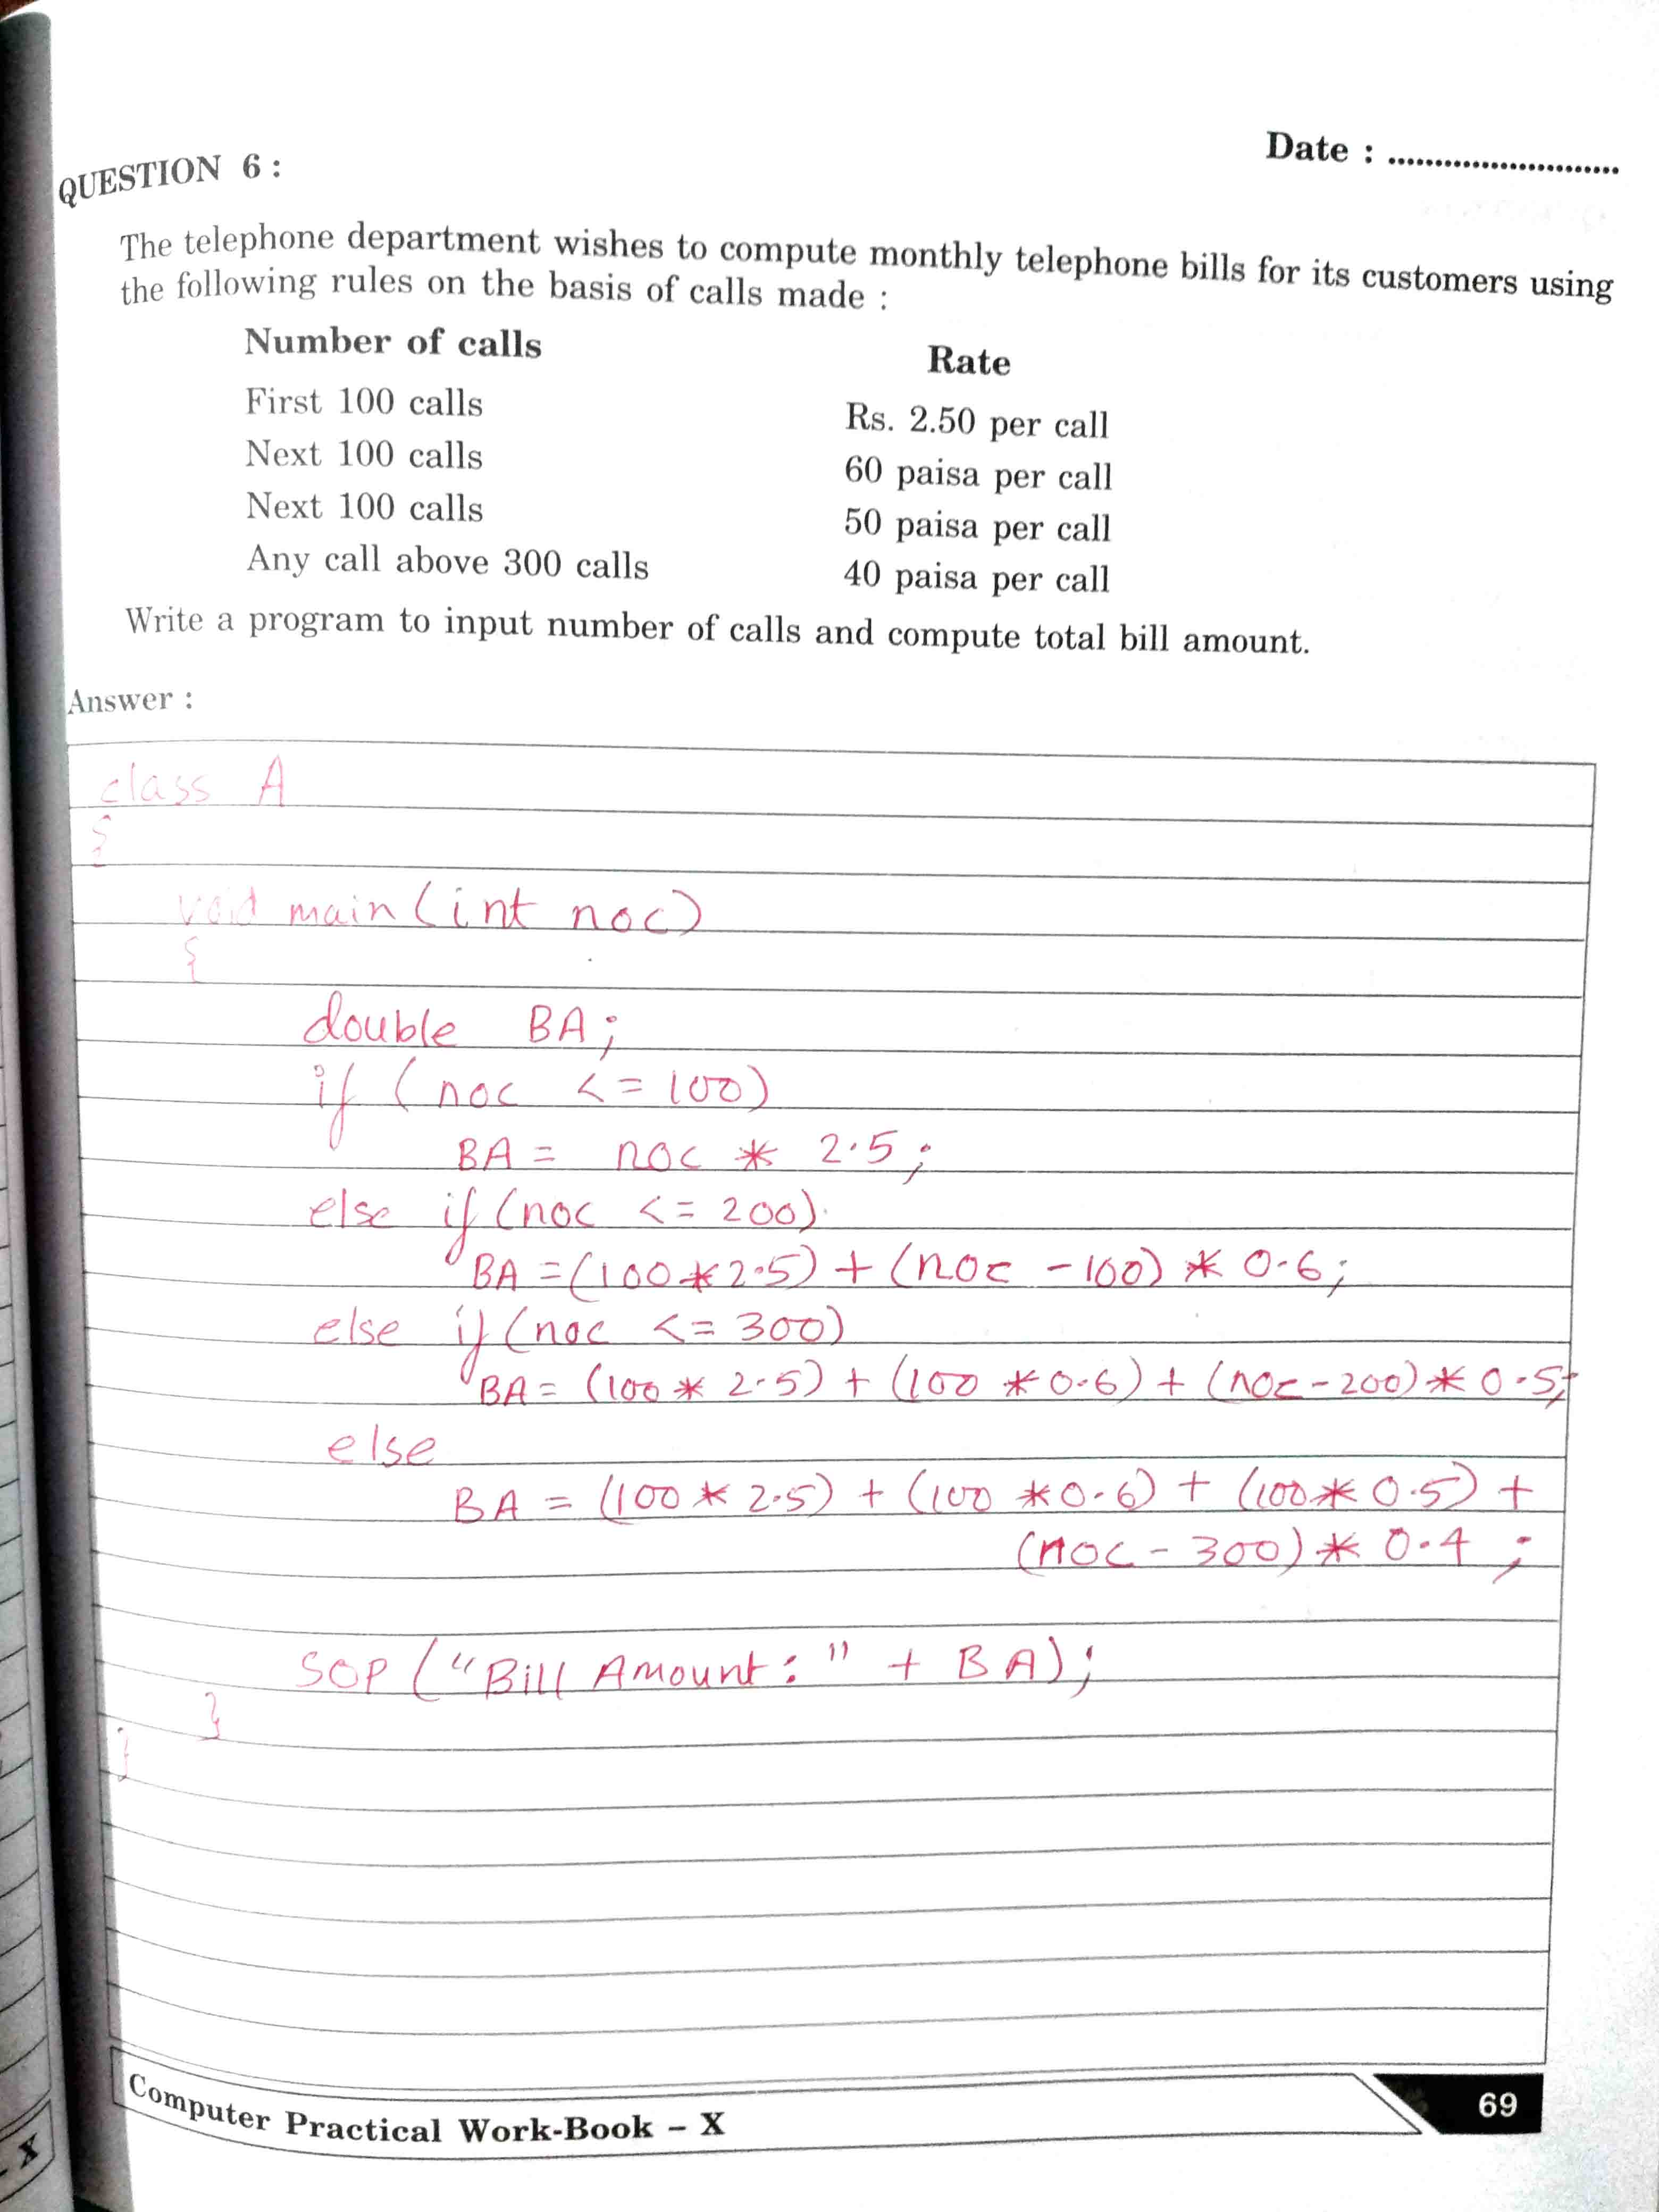 Date : ..........................
QUESTION 6 :
The telephone department wishes to compute monthly telephone bills for its customers using
the following rules on the basis of calls made :
Number of calls Rate
First 100 calls Rs. 2.50 per call
Next 100 calls 60 paisa per call
Next 100 calls 50 paisa per call
Any call above 300 calls 40 paisa per call
Write a program to input number of calls and compute total bill amount.
Answer :
class A
{
void main (int noc)
{
double BA;
if (noc <= 100)
BA = noc * 2.5;
else if (noc <= 200)
BA = (100*2.5) + (noc - 100) * 0.6;
else if (noc <= 300)
BA = (100 * 2.5) + (100 * 0.6) + (noc - 200) * 0.5;
else
BA = (100 * 2.5) + (100 * 0.6) + (100 * 0.5) +
(noc - 300) * 0.4 ;
SOP ("Bill Amount: " + BA);
}
}
Computer Practical Work-Book – X 69
- X